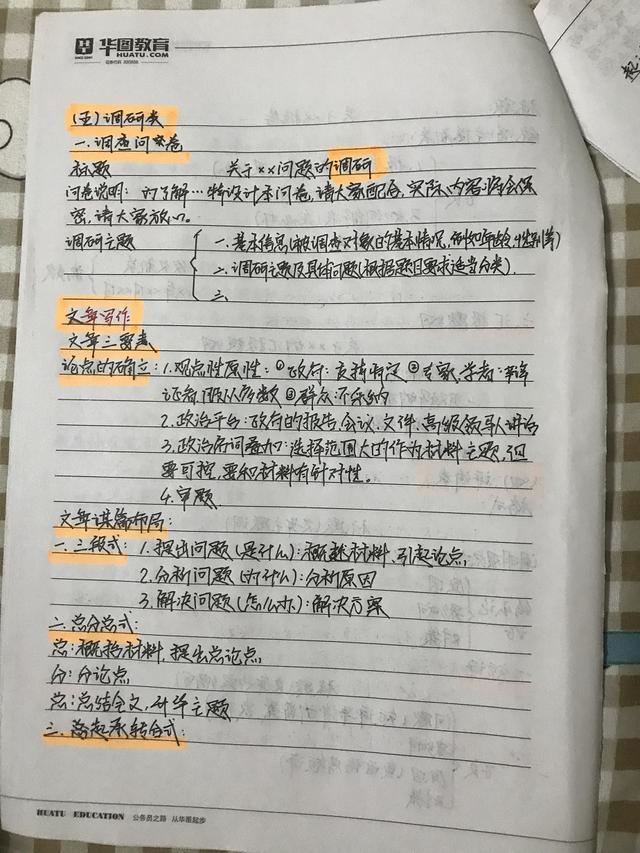 华图教育
HUATU.COM
(五)调研类
一.调查问卷卷
标题 关于××问题的调研
问卷说明:为了解…特设计本问卷,请大家配合,实际内容将会保
密,请大家放心。
调研主题 一.基本信息(被调查对象的基本情况,例如年龄,性别等)
二.调研主题及具体问题(根据题目要求适当分类).
三.
文章写作
文章三要素
论点的确立:1.观点性原性:①政府:支持肯定 ②专家,学者:
证和,服从多数 ③群众:不采纳
2.政治平台:政府的报告,会议,文件,高级领导人讲话
3.政治名词叠加:选择范围大的作为材料主题,但
要可控,要和材料有针对性。
4.审题
文章谋篇布局:
一.三段式:1.提出问题(是什么):概括材料,引起论点,
2.分析问题(为什么):分析原因
3.解决问题(怎么办):解决方案
二.总分总式:
总:概括材料,提出总论点,
分:分论点
总:总结全文,升华主题
三.起承转合式:
HUATU EDUCATION 公务员之路 从华图起步